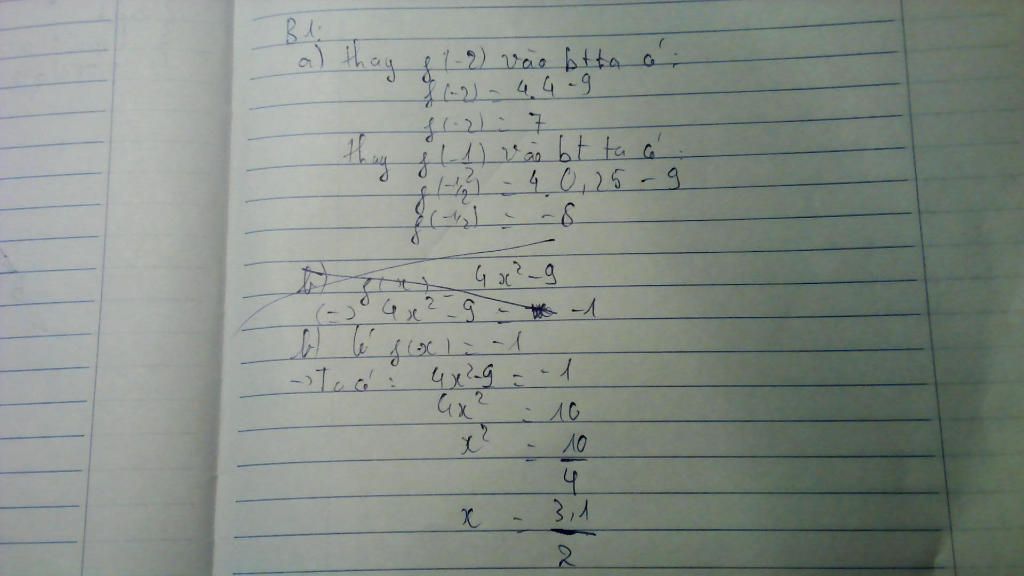 B1:
a) Thay f(-2) vào bt ta có:
f(-2) = 4.4 - 9
f(-2) = 7
Thay f(-1/2) vào bt ta có:
f(-1/2) = 4.0,25 - 9
f(-1/2) = -8
b) f(x) 4x² - 9
(=) 4x² - 9 = -1
b) Có f(x) = -1
→ Ta có: 4x² - 9 = -1
4x² = 10
x² = 10/4
x = 3,1/2